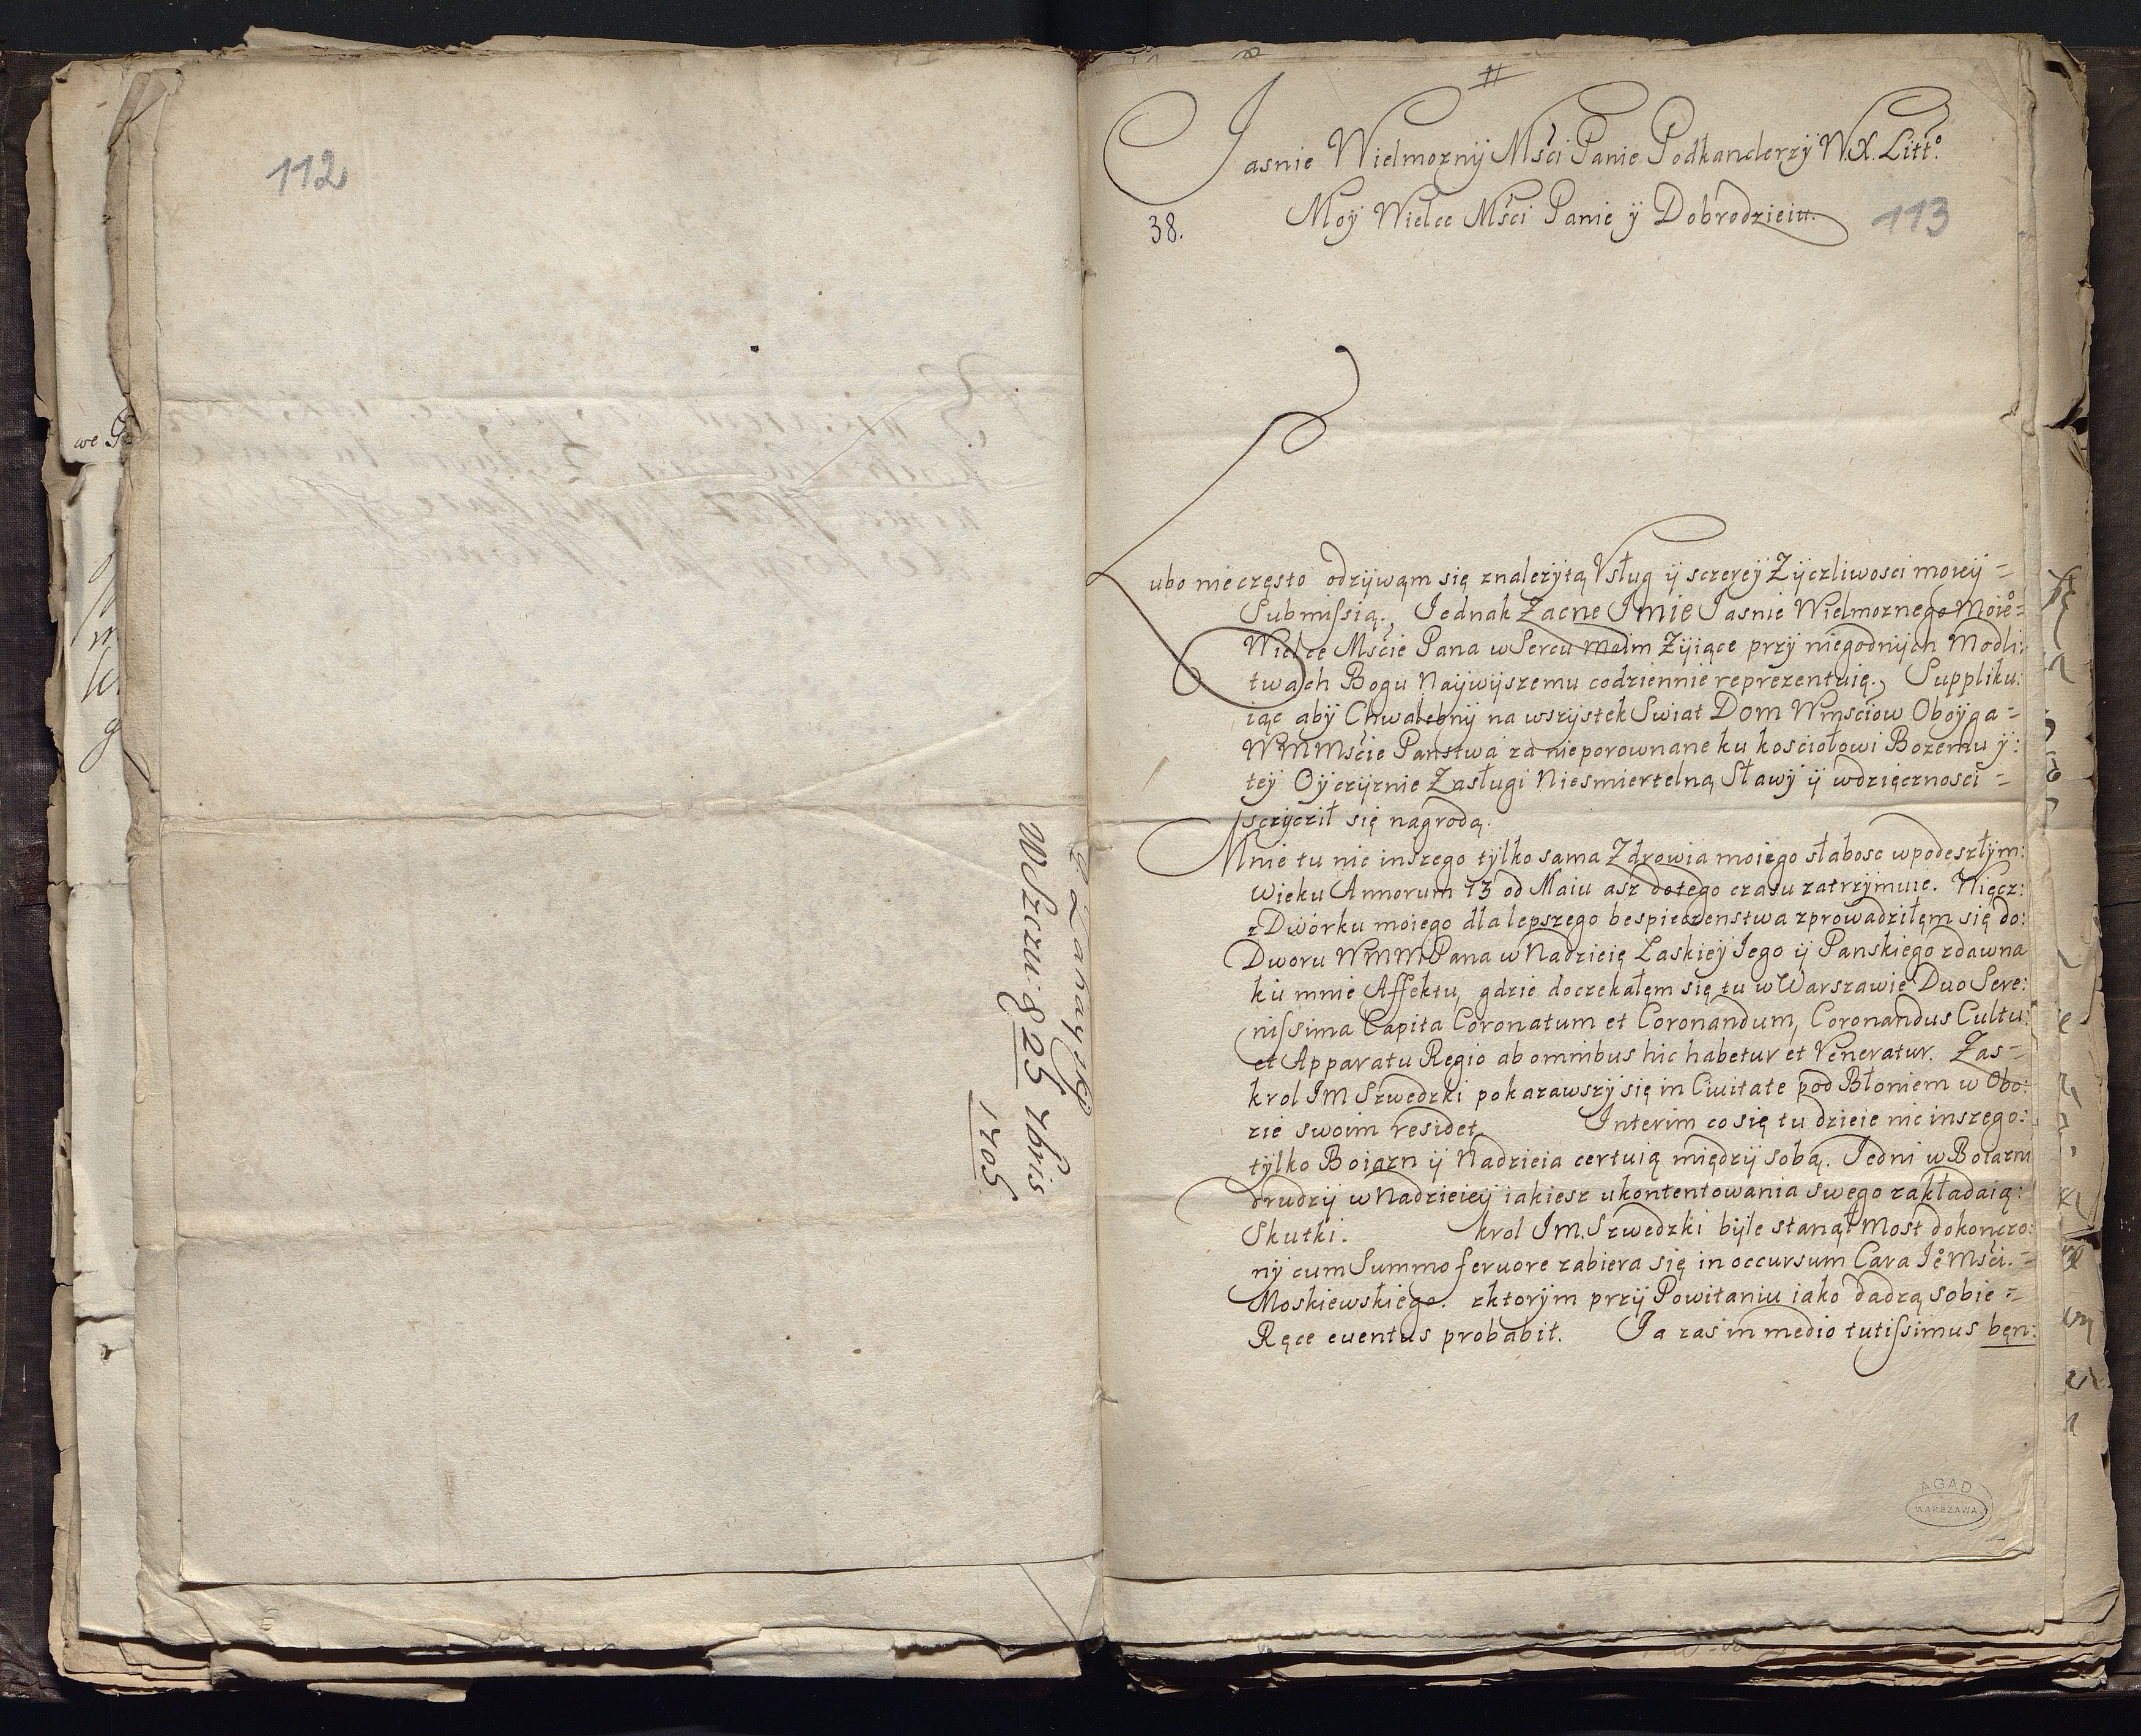 112
W Szczu: 8 25 7bris
1705
#
Jasnie Wielmozny Mści Panie Podkanclerzy W.X. Litt°.
38.
Moy Wielce Mści Panie ÿ Dobrodzieiu.
113
Lubo nieczęsto odzÿwąm się znalezÿtą Vsług ÿ sczereÿ Zÿczliwosci moieÿ =
Submissią., Jednak Zacne Jmie Jasnie Wielmoznego Moie°=
Wielce Mście Pana w Sercu moim Zÿiące przÿ niegodnÿch Modli:
twach Bogu Naÿwÿszemu codziennie reprezentuię., Suppliku:
iąc abÿ Chwalebnÿ na wszÿstek Swiat Dom Wmsciow Oboÿga =
WMMście Panstwa za nieporownane ku kosciołowi Bozemu ÿ:
teÿ Oÿczÿznie Zasługi Niesmiertelną Sławÿ ÿ wdzięcznosci =
sczÿcził się nagrodą.
Mnie tu nic inszego tÿlko sama Zdrowia moiego słabosc w podeszłÿm:
wieku Annorum 73 od Maiu asz do tego czasu zatrzÿmuie. Nięcz:
z Dworku moiego dla lepszego bespieczenstwa zprowadziłęm się do:
Dworu WMMPana w Nadzieię Laskieÿ Jego ÿ Panskiego zdawna
ku mnie Affektu, gdzie doczekałęm się tu w Warszawie Duo Sere:
nissima Capita Coronatum et Coronandum, Coronandus Cultu:
et Apparatu Regio ab omnibus hic habetur et Veneratur. Zas =
krol JM Szwedzki pokazawszÿ się in Ciuitate pod Błoniem w Obo:
zie swoim residet. Interim co się tu dzieie nic inszego:
tÿlko Boiązn ÿ Nadzieia certuią międzÿ sobą. Jedni w Boiazni
drudzÿ w Nadzieieÿ iakiesz ukontentowania swęgo zakładaią:
Skutki. krol JM. Szwedzki bÿle stanął Most dokonczo:
nÿ cum Summo feruore zabiera się in occursum Cara Je° Mści. =
Moskiewskiego. zktorÿm przÿ Powitaniu iako dadzą sobie =
Ręce euentus probabit. Ja zas in medio tutissimus bęn:
AGAD
WARSZAWA